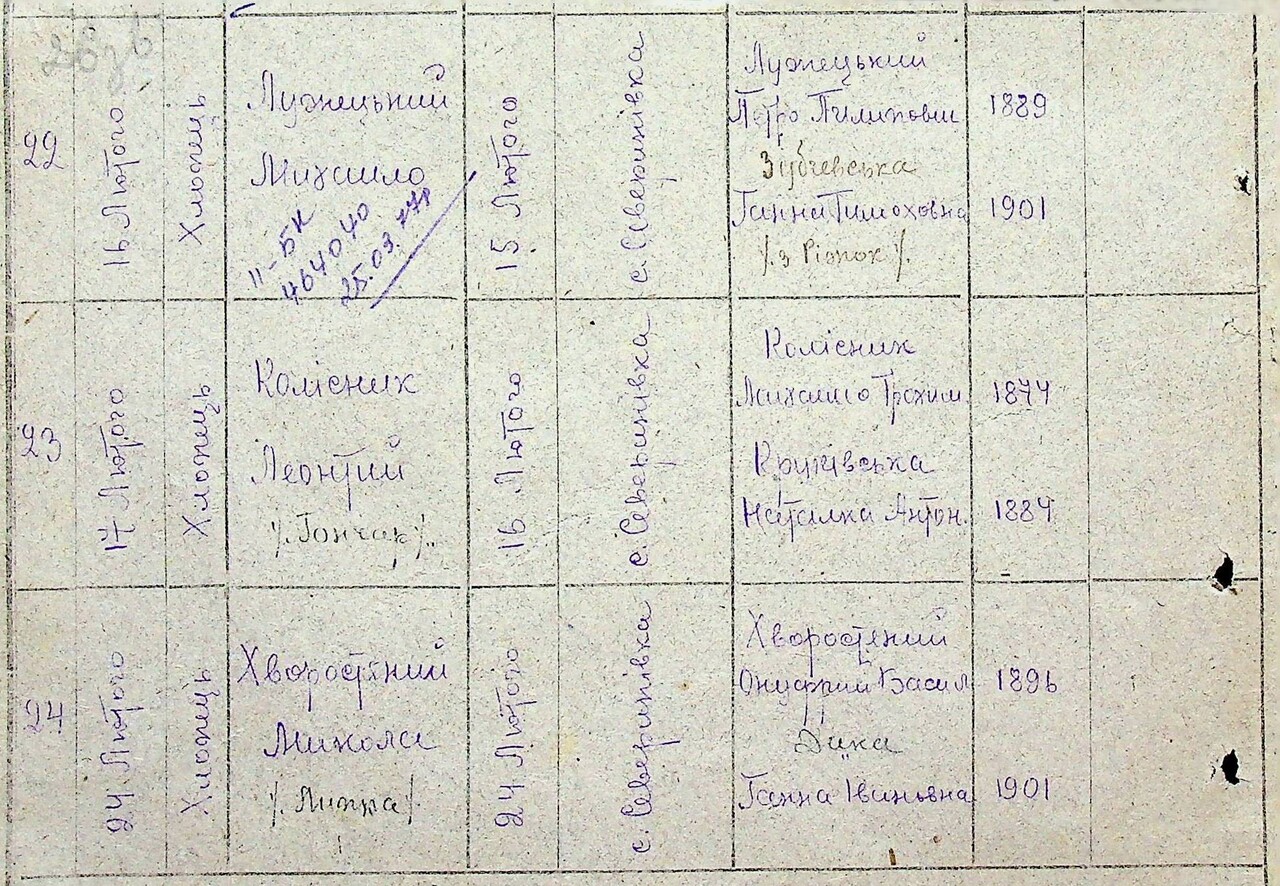 22
16 Лютого
Хлопець
Лужецький
Михайло
II-БК
464040
25.03.77р
15 Лютого
с. Северинівка
Лужецький
Петро Пилипович
Зубчевська
Ганна Тимоховна
/. з Ріпок /.
1889
1901
23
17 Лютого
Хлопець
Колісник
Леонтий
/. Гончар /.
16 Лютого
с. Северинівка
Колісник
Михайло Трохим.
Круківська
Наталка Антон.
1874
1884
24
24 Лютого
Хлопець
Хворостяний
Микола
/. Липка /.
24 Лютого
с. Северинівка
Хворостяний
Онуфрий Васил
Дика
Ганна Івановна
1896
1901